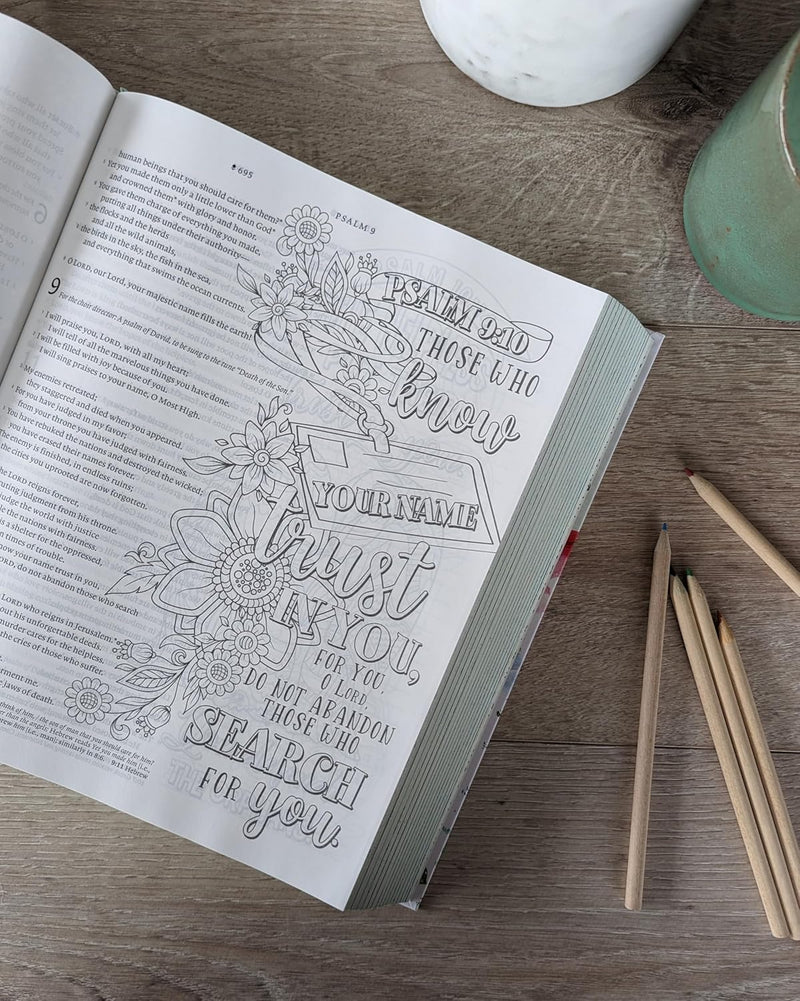 695
PSALM 9
human beings that you should care for them?
5 Yet you made them only a little lower than God
and crowned them with glory and honor.
6 You gave them charge of everything you made,
putting all things under their authority—
7 the flocks and the herds
and all the wild animals,
8 the birds in the sky, the fish in the sea,
and everything that swims the ocean currents.
9 O LORD, our Lord, your majestic name fills the earth!
9
For the choir director: A psalm of David, to be sung to the tune “Death of the Son.”
1 I will praise you, LORD, with all my heart;
I will tell of all the marvelous things you have done.
2 I will be filled with joy because of you.
I will sing praises to your name, O Most High.
My enemies retreated;
they staggered and died when you appeared.
For you have judged in my favor;
from your throne you have judged with fairness.
You have rebuked the nations and destroyed the wicked;
you have erased their names forever.
The enemy is finished, in endless ruins;
the cities you uprooted are now forgotten.
LORD reigns forever,
judgment from his throne.
judge the world with justice
the nations with fairness.
is a shelter for the oppressed,
in times of trouble.
know your name trust in you,
LORD, do not abandon those who search
LORD who reigns in Jerusalem.
his unforgettable deeds.
murder cares for the helpless.
the cries of those who suffer.
me.
jaws of death.
PSALM 9:10
THOSE WHO
know
YOUR NAME
trust
IN YOU,
FOR YOU,
O LORD,
DO NOT ABANDON
THOSE WHO
SEARCH
FOR you.